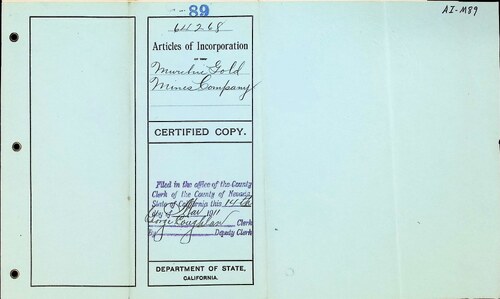 89
AI-M89
64268
Articles of Incorporation
OF THE
Murchie Gold
Mines Company
CERTIFIED COPY.
Filed in the office of the County
Clerk of the County of Nevada
State of California this 14th
day of Mar 1911
Clerk
By Deputy Clerk
DEPARTMENT OF STATE,
CALIFORNIA.